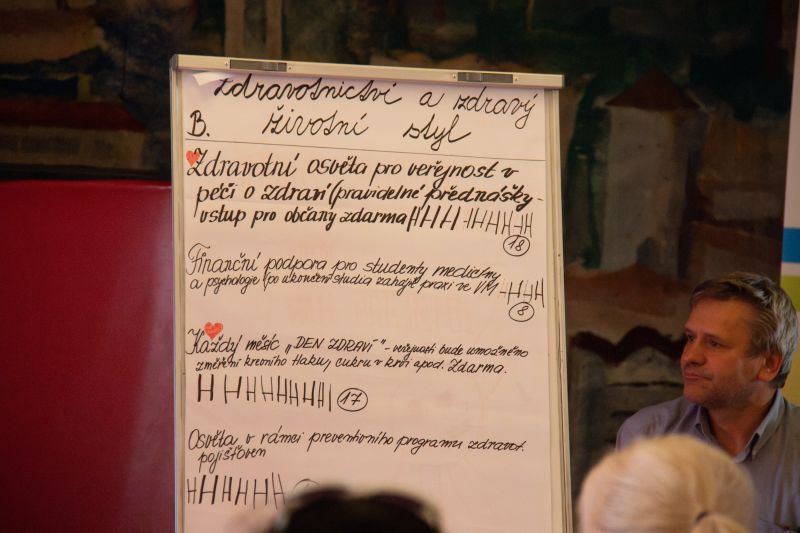 Zdravotnictví a zdravý
B. životní styl
Zdravotní osvěta pro veřejnost v
péči o zdraví (pravidelné přednášky -
vstup pro občany zdarma
18
Finanční podpora pro studenty medicíny
a psychologie (po ukončení studia zahájit praxi ve VM
8
Každý měsíc „DEN ZDRAVÍ" - veřejnosti bude umožněno
změření krevního tlaku, cukru v krvi apod. Zdarma.
17
Osvěta v rámci preventivního programu zdravot.
pojišťoven